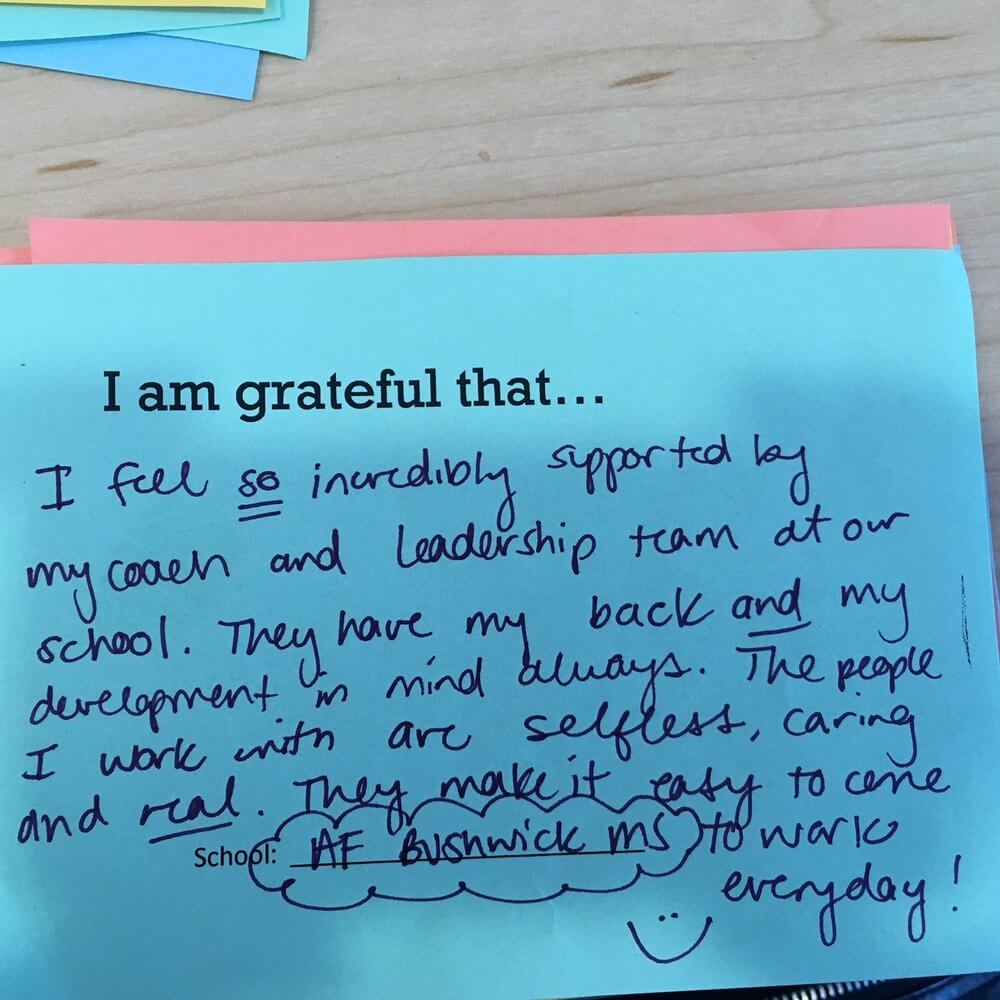 I am grateful that...
I feel so incredibly supported by
my coach and leadership team at our
school. They have my back and my
development in mind always. The people
I work with are selfless, caring
and real. They make it easy to come
School: AF Bushwick MS to work
everyday!